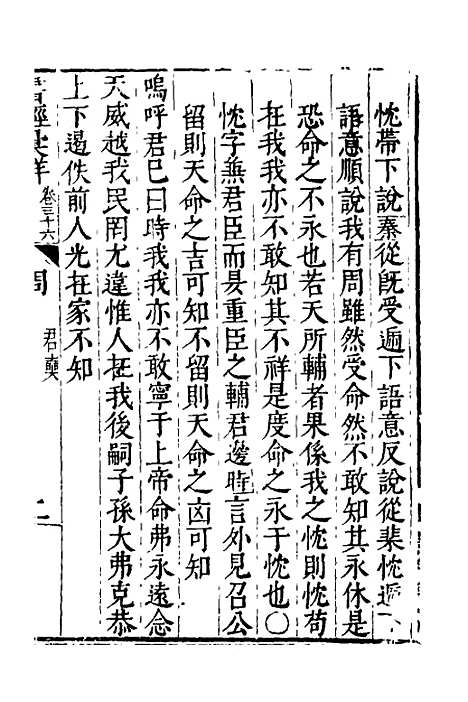 忱帶下說蓋從旣受遍下語意反說從棐忱遍下
語意順說我有周雖然受命然不敢知其永休是
恐命之不永也若天所輔者果係我之忱則忱苟
在我我亦不敢知其不祥是度命之永于忱也〇
忱字無君臣而㫷重臣之輔君邊時言外見召公
留則天命之吉可知不留則天命之凶可知
嗚呼君已曰時我我亦不敢寧于上帝命弗永遠念
天威越我民罔尤違惟人在我後嗣子孫大弗克恭
上下遏佚前人光在家不知
書經 卷三十六 周 君奭